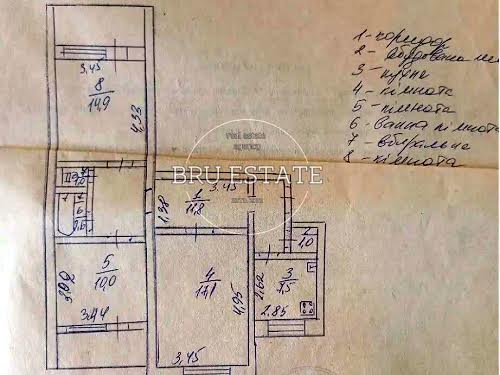 1 - коридор
2 - вбудована
3 - кухня
4 - кімната
5 - кімната
6 - ванна кімната
7 - вбиральня
8 - кімната
3,45
8
14,9
4,33
real estate
agency
BRU ESTATE
3.45
1
11,8
1,38
7
6
2
1,0
5
10,0
3,02
3,44
4
17,1
4,95
3,45
3
7,5
2,62
2.85